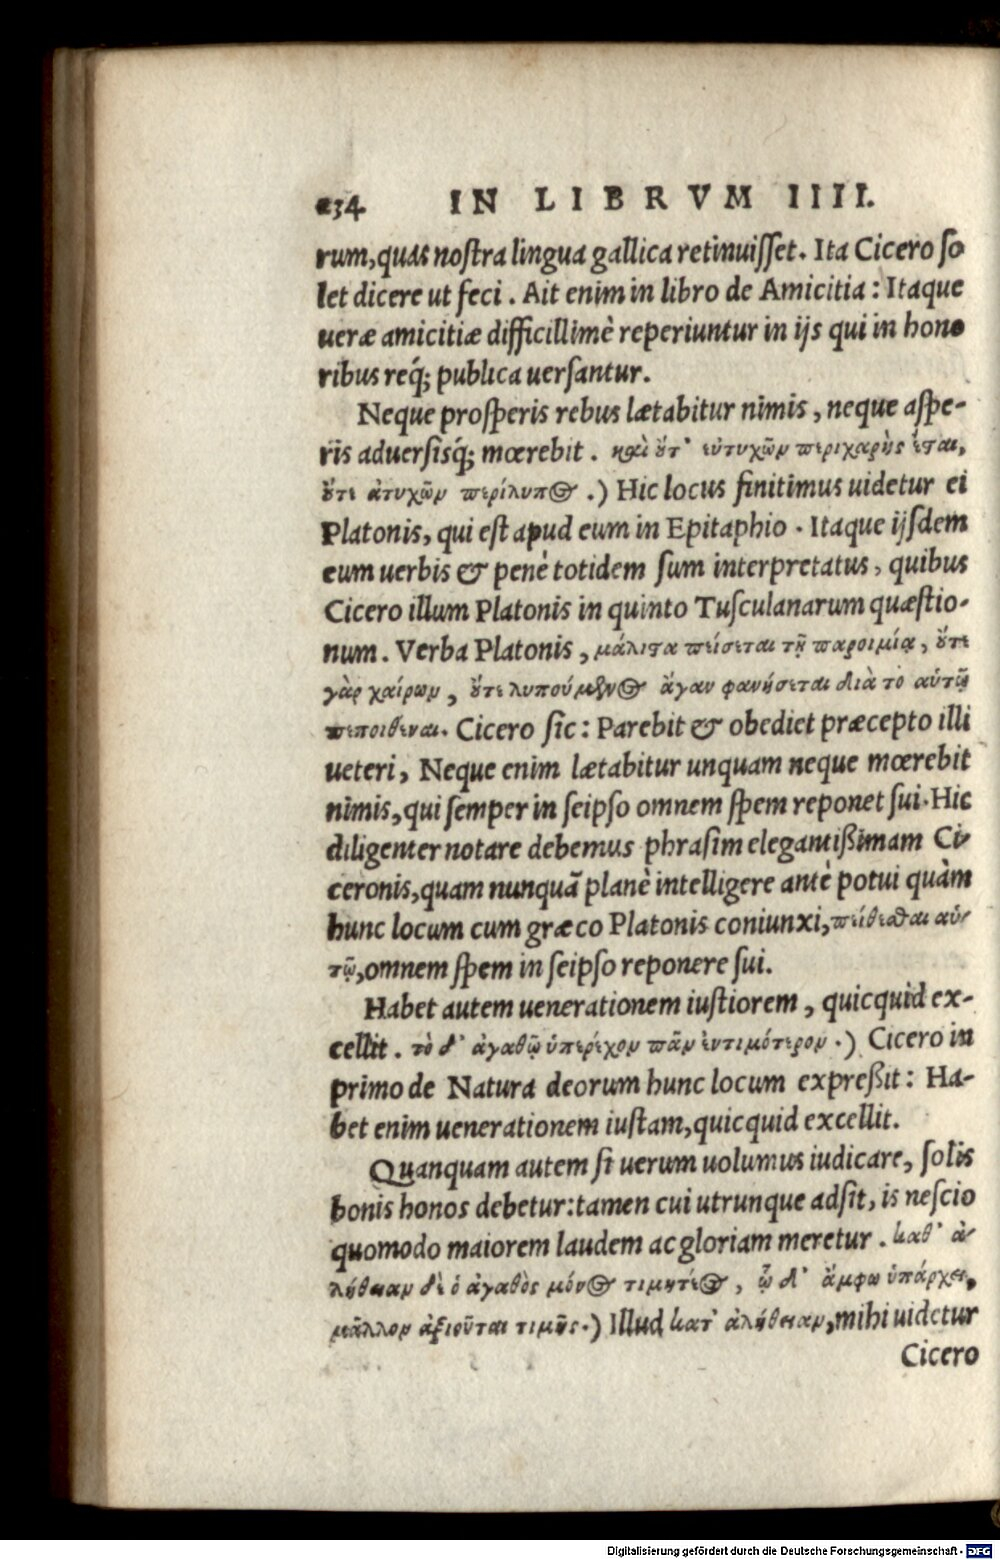 234 IN LIBRVM IIII.
rum, quas nostra lingua gallica retinuisset. Ita Cicero so
let dicere ut feci. Ait enim in libro de Amicitia: Itaque
ueræ amicitiæ difficillimè reperiuntur in ijs qui in hono
ribus req́; publica uersantur.
Neque prosperis rebus lætabitur nimis, neque aspe-
ris aduersisq́; mœrebit. καὶ ὔτ' εὐτυχῶν περιχαρὴς ἔσται,
ὔτε ἀτυχῶν περίλυπος.) Hic locus finitimus uidetur ei
Platonis, qui est apud eum in Epitaphio. Itaque ijsdem
eum uerbis & penè totidem sum interpretatus, quibus
Cicero illum Platonis in quinto Tusculanarum quæstio-
num. Verba Platonis, μάλιστα πείσεται τῇ παροιμίᾳ, ὔτε
γὰρ χαίρων, ὔτε λυπούμενος ἄγαν φανήσεται διὰ τὸ αὑτῷ
πεποιθέναι. Cicero sic: Parebit & obediet præcepto illi
ueteri, Neque enim lætabitur unquam neque mœrebit
nimis, qui semper in seipso omnem spem reponet sui. Hic
diligenter notare debemus phrasim elegantißimam Ci-
ceronis, quam nunquã planè intelligere antè potui quàm
hunc locum cum græco Platonis coniunxi, πείθεσθαι αὑ-
τῷ, omnem spem in seipso reponere sui.
Habet autem uenerationem iustiorem, quicquid ex-
cellit. τὸ δ' ἀγαθῷ ὑπερέχον πᾶν ἐντιμότερον.) Cicero in
primo de Natura deorum hunc locum expreßit: Ha-
bet enim uenerationem iustam, quicquid excellit.
Quanquam autem si uerum uolumus iudicare, solis
bonis honos debetur: tamen cui utrunque adsit, is nescio
quomodo maiorem laudem ac gloriam meretur. κατ' ἀ-
λήθειαν δὲ ὁ ἀγαθὸς μόνος τιμητέος, ᾧ δ' ἄμφω ὑπάρχει,
μᾶλλον ἀξιοῦται τιμῆς.) Illud κατ' ἀλήθειαν, mihi uidetur
Cicero
Digitalisierung gefördert durch die Deutsche Forschungsgemeinschaft - DFG